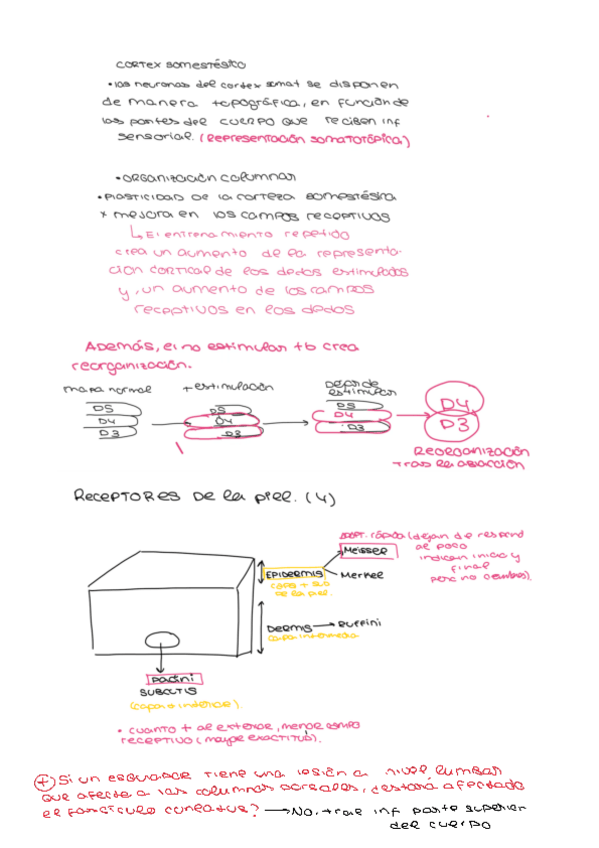 CORTEX SOMESTÉSICO
• las neuronas del cortex somat se disponen
de manera topográfica, en función de
las partes del cuerpo que reciben inf
sensorial. (Representación somatotópica)
• ORGANIZACIÓN COLUMNAR
• PLASTICIDAD DE LA CORTEZA SOMESTÉSICA
* mejora en los campos receptivos
↳ El entrenamiento repetido
crea un aumento de la representa-
ción cortical de los dedos estimulados
y, un aumento de los campos
receptivos en los dedos
Además, el no estimular tb crea
reorganización.
mapa normal + estimulación Dejar de
estimular
D5 D5 D5 D4
D4 D4 D4 D3
D3 D3 D3
REORGANIZACIÓN
tras la
RECEPTORES DE la piel. (4)
ADAPT. rápida (dejan de respond
al poco
indican inicio y
final
pero no cambios).
Meissner
EPIDERMIS
Merkel
capa +
de la piel.
DERMIS → Ruffini
capa intermedia
Pacini
SUBCUTIS
(capa + interior)
• cuanto + al exterior, menor campo
receptivo (mayor exactitud).
+ Si un esquiador tiene una lesión a nivel lumbar
que afecte a las columnas dorsales, ¿estará afectado
el fascículo cuneatus? → No, trae inf parte superior
del cuerpo